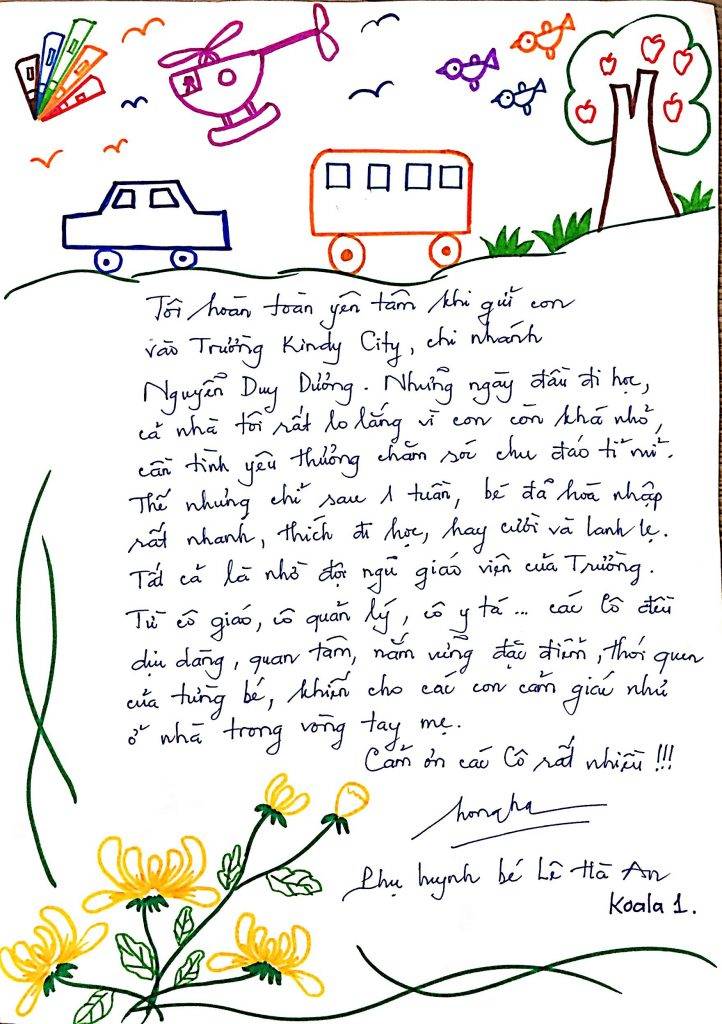 Tôi hoàn toàn yên tâm khi gửi con
vào Trường Kindy City, chi nhánh
Nguyễn Duy Dương. Những ngày đầu đi học,
cả nhà tôi rất lo lắng vì con còn khá nhỏ,
cần tình yêu thương chăm sóc chu đáo tỉ mỉ.
Thế nhưng chỉ sau 1 tuần, bé đã hoà nhập
rất nhanh, thích đi học, hay cười và lanh lẹ.
Tất cả là nhờ đội ngũ giáo viên của Trường.
Từ cô giáo, cô quản lý, cô y tá... các Cô đều
dịu dàng, quan tâm, nắm vững đặc điểm, thói quen
của từng bé, khiến cho các con cảm giác như
ở nhà trong vòng tay mẹ.
Cảm ơn các Cô rất nhiều !!!
hongha
Phụ huynh bé Lê Hà An
Koala 1.